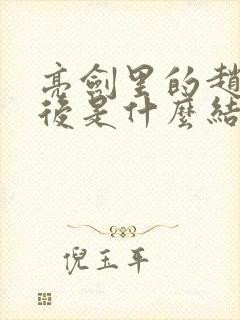 亮劍里的趙
後是什麼結
倪玉平